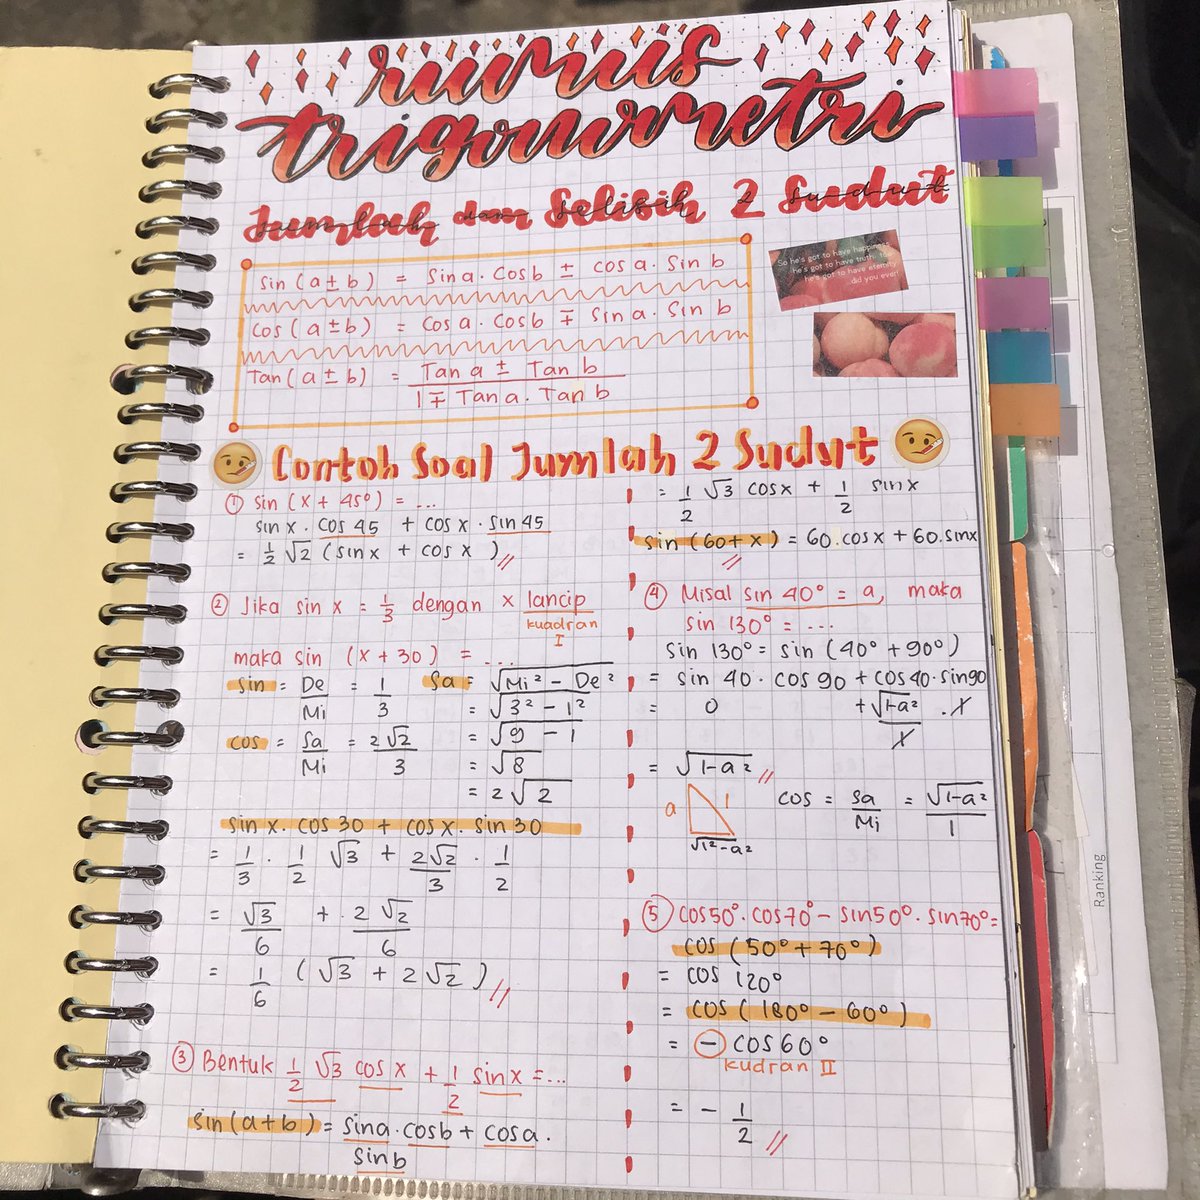 rumus
trigonometri
Jumlah dan Selisih 2 Sudut
sin (a ± b) = sin a . cos b ± cos a . sin b
cos (a ± b) = cos a . cos b ∓ sin a . sin b
Tan (a ± b) = Tan a ± Tan b
1 ∓ Tan a . Tan b
So he's got to have happiness,
he's got to have truth, too
he's got to have eternity
did you ever!
Contoh Soal Jumlah 2 Sudut
① sin (x + 45°) = ...
sin x . cos 45 + cos x . sin 45
= 1/2 √2 (sin x + cos x) //
② Jika sin x = 1/3 dengan x lancip
kuadran
I
maka sin (x + 30) = ...
sin = De/Mi = 1/3 sa = √Mi² - De²
= √3² - 1²
cos = Sa/Mi = 2√2/3 = √9 - 1
= √8
= 2√2
sin x . cos 30 + cos x . sin 30
= 1/3 . 1/2 √3 + 2√2/3 . 1/2
= √3/6 + . 2√2/6
= 1/6 (√3 + 2√2) //
③ Bentuk 1/2 √3 cos x + 1/2 sin x = ...
sin (a + b) = sin a . cos b + cos a .
sin b
= 1/2 √3 cos x + 1/2 sin x
sin (60 + x) = 60 . cos x + 60 . sin x
//
④ Misal sin 40° = a, maka
sin 130° = ...
sin 130° = sin (40° + 90°)
= sin 40 . cos 90 + cos 40 . sin 90
= 0 + √1-a²/1 . 1
= √1-a² //
a 1 cos = Sa/Mi = √1-a²/1
√1²-a²
⑤ cos 50° . cos 70° - sin 50° . sin 70° =
cos (50° + 70°)
= cos 120°
= cos (180° - 60°)
= - cos 60°
kudran II
= - 1/2 //
Ranking